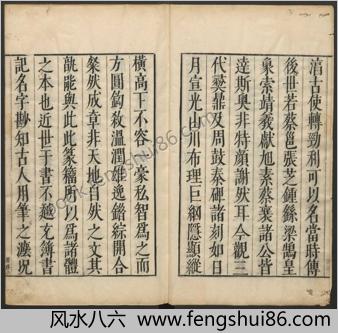 淯古使轉勁利可以名當時傳
後世若蔡邕張芝鍾繇梁鵠皇
象索靖羲獻旭素蔡襄諸公皆
達斯奧非特顔謝然耳今觀三
代彝鼎及周鼓秦碑諸刻如日
月宣光山川布理巨綱隱顯縱
橫高下不容一豪私智爲之而
方圓鈎斂溫潤雄逸錯綜開合
粲然成章非天地自然之文其
孰能與此此篆籀所以爲諸體
之本也近世于書不越充簿書
記名字尠知古人用筆之灋况
www.fengshui86.com
风水八六 - fengshui86.com